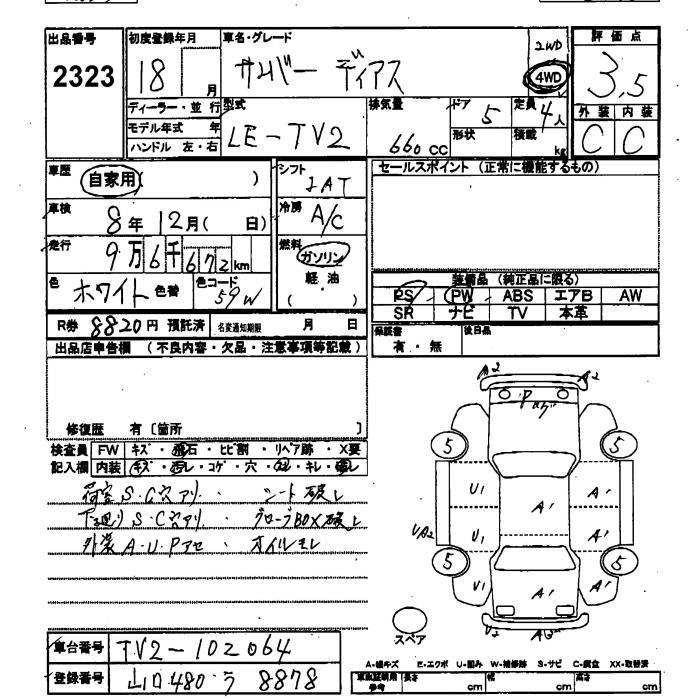 出品番号 初度登録年月 車名・グレード 評価点
2323 18 月 サムバー ディアス 2WD 4WD 3,5
ディーラー・並行 型式 排気量 ドア 5 定員 4人 外装 内装
モデル年式 年 LE-TV2 660 CC 形状 積載 kg C C
ハンドル 左・右
車歴 自家用( ) シフト セールスポイント (正常に機能するもの)
車検 8年12月( 日) 冷房 A/C
走行 9万6千672km 燃料 ガソリン
色 ホワイト 色替 色コード 59W 軽・油 ( )
装備品 (純正品に限る)
PS PW ABS エアB AW
SR ナビ TV 本革
R券 8820円 預託済 名変通知期限 月 日
保証書 有・無 後日品
出品店申告欄 (不良内容・欠品・注意事項等記載)
修復歴 有〔箇所 〕
検査員 FW キズ・飛石・ヒビ割・リペア跡・X要
記入欄 内装 キズ・汚レ・コゲ・穴・キレ
荷室 S・C穴アリ・ シート破レ
下廻り S・C穴アリ・グローブBOX破レ
外装 A・U・Pアセ・オイルモレ
A2 A2
5 5
U1 A1
UA2 U1 A1
5 5
U1 A1 A1
スペア
U2 A2
車台番号 TV2-102064
登録番号 山口480う 8878
A-線キズ E-エクボ U-凹み W-補修跡 S-サビ C-腐食 XX-取替済
車庫証明用参考 長さ cm 幅 cm 高さ cm